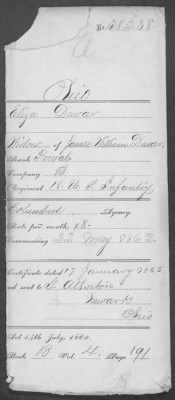 No. 38238.
Ohio
Eliza Dewar
Widow of James William Dewar
Rank Private
Company B.
Regiment 18. U. S. Infantry
Columbus Agency
Rate per month, $8.
Commencing 22. May 1862.
Certificate dated 17. January 1865.
and sent to
Newark
Ohio
Act 14th July, 1862.
Book B Vol. 4. Page 191